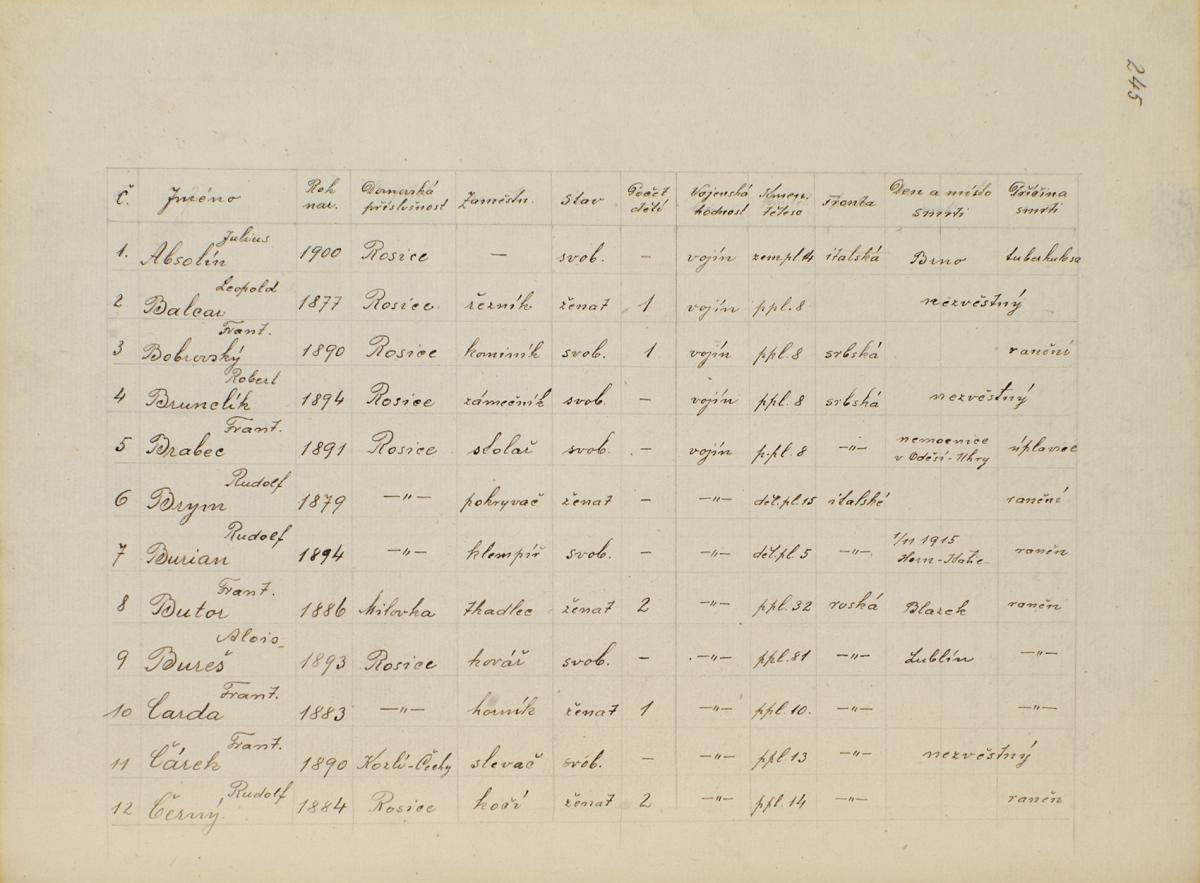 245
Č. Jméno Rok nar. Domovská příslušnost Zaměstn. Stav Počet dětí Vojenská hodnost Kmen. těleso Fronta Den a místo smrti Příčina smrti
1. Absolín Julius 1900 Rosice — svob. - vojín zem.pl.14 italská Brno tuberkulosa
2 Balcar Leopold 1877 Rosice řezník ženat 1 vojín ppl.8 nezvěstný
3 Bobrovský Frant. 1890 Rosice kominík svob. 1 vojín ppl.8 srbská ranění
4 Brunclík Robert 1894 Rosice zámečník svob. - vojín ppl.8 srbská nezvěstný
5 Brabec Frant. 1891 Rosice stolař svob. - vojín p.pl.8 —"— nemocnice v Oděsi-Uhry úplavice
6 Brym Rudolf 1879 —"— pokryvač ženat - —"— děl.pl.15 italské ranění
7 Burian Rudolf 1894 —"— klempíř svob. - —"— děl.pl.5 —"— 1/11 1915 raněn
8 Butor Frant. 1886 Milovka tkadlec ženat 2 —"— ppl.32 ruská Blazek raněn
9 Bureš Alois 1893 Rosice kovář svob. - —"— ppl.81 —"— Lublín —"—
10 Čarda Frant. 1883 —"— horník ženat 1 —"— ppl.10. —"— —"—
11 Čárek Frant. 1890 Kozlí-Čechy slevač svob. - —"— ppl.13 —"— nezvěstný
12 Černý Rudolf 1884 Rosice kočí ženat 2 —"— ppl.14 —"— raněn